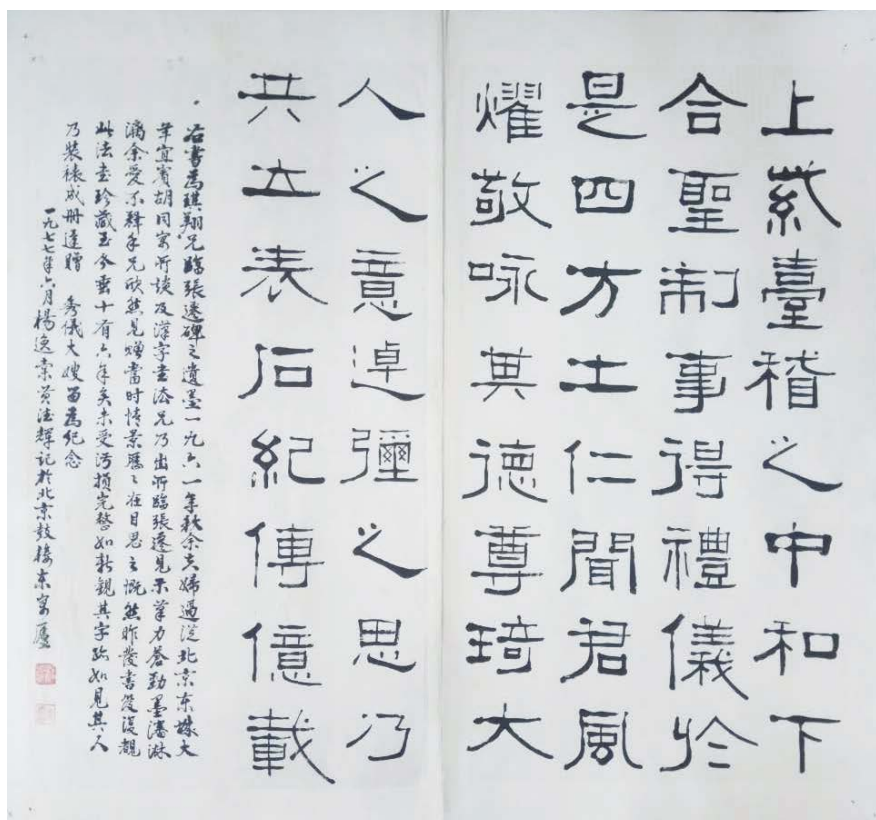 上紫臺稽之中和下
合聖制事得禮儀於
是四方土仁聞君風
燿敬咏其德尊琦大
人之意逴彌之思乃
共立表石紀傳億載
右書為琪翔兄臨張遷碑之遺墨一九六一年秋余夫婦過從北京东城大
羊宜賓胡同寓所談及漢字書法兄乃出所臨張遷見示筆力蒼勁墨瀋淋
漓余愛不釋手兄欣然見贈當时情景歷々在目思之慨然昨發書篋復觀
此法書珍藏至今垂十有六年矣未受污損完整如新觀其字跡如見其人
乃裝裱成册遙贈 秀儀大嫂留為纪念
一九七七年六月楊逸棠黃法輝記於北京鼓樓东寓廬